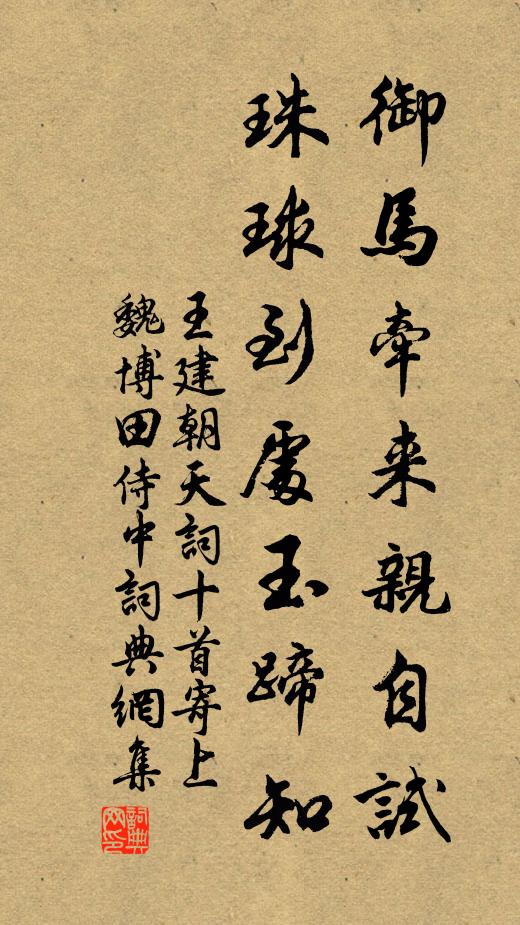 御馬牽来親自試
珠球到處玉蹄知
王建朝天詞十首寄上
魏博田侍中詞典網集
詞典网印